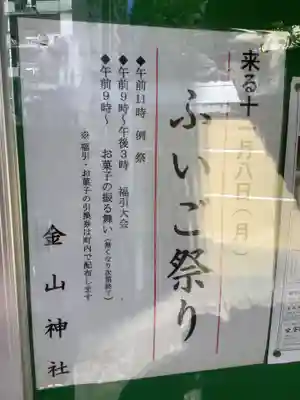 来る十一月八日(月)
ふいご祭り
◆午前11時 例祭
◆午前9時~午後3時 福引大会
◆午前9時~ お菓子の振る舞い(無くなり次第終了)
※福引・お菓子の引換券は町内で配布します
金山神社